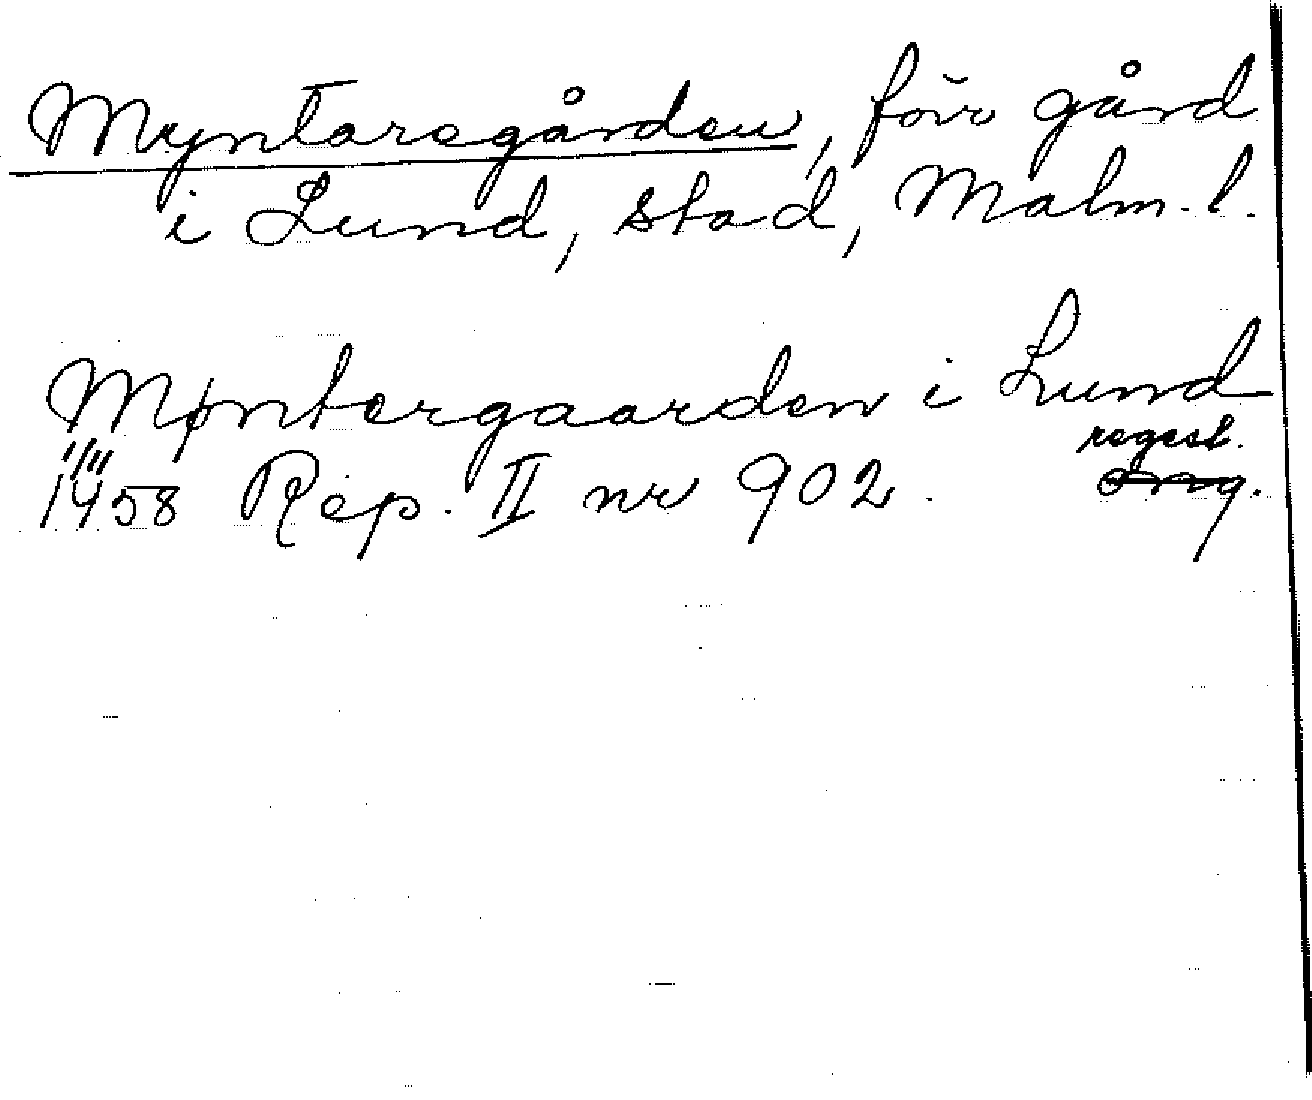 Myntaregården, förr gård
i Lund, stad, Malm. l.
Møntergaarden i Lund
regest.
1/11 1458 Rep. II nr 902.